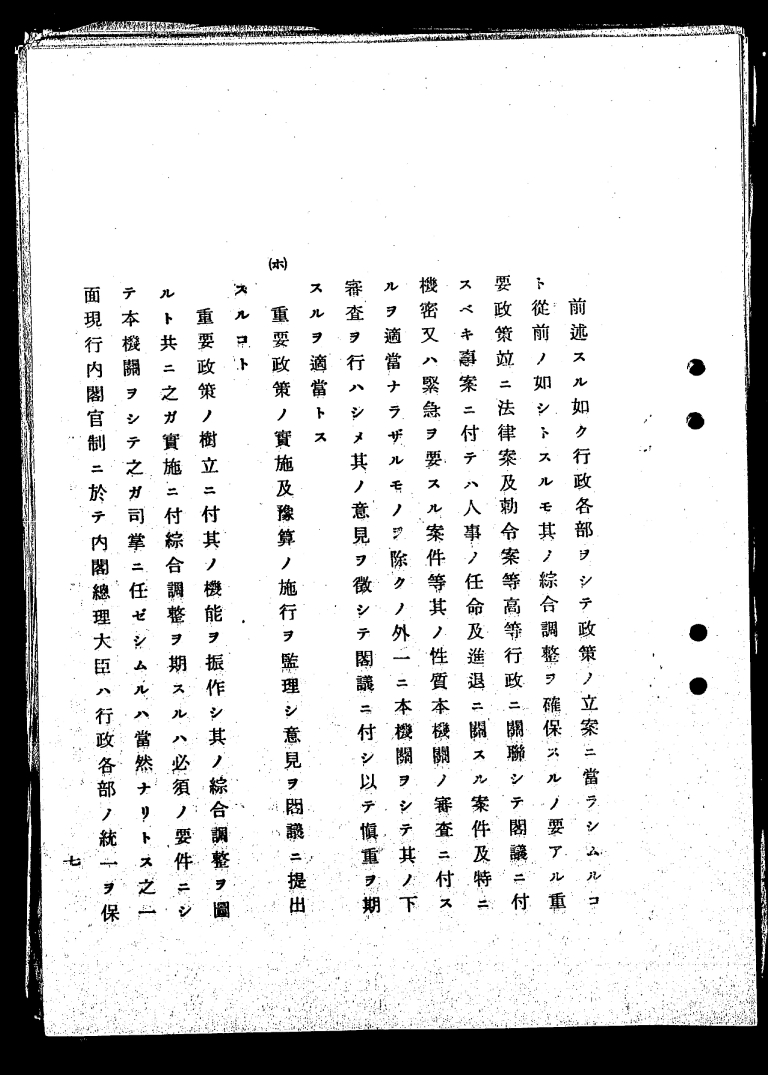 前述スル如ク行政各部ヲシテ政策ノ立案ニ當ラシムルコ
ト從前ノ如シトスルモ其ノ綜合調整ヲ確保スルノ要アル重
要政策竝ニ法律案及勅令案等高等行政ニ關聯シテ閣議ニ付
スベキ事案ニ付テハ人事ノ任命及進退ニ關スル案件及特ニ
機密又ハ緊急ヲ要スル案件等其ノ性質本機關ノ審査ニ付ス
ルヲ適當ナラザルモノヲ除クノ外一ニ本機關ヲシテ其ノ下
審査ヲ行ハシメ其ノ意見ヲ徵シテ閣議ニ付シ以テ愼重ヲ期
スルヲ適當トス
(ホ) 重要政策ノ實施及豫算ノ施行ヲ監理シ意見ヲ閣議ニ提出
スルコト
重要政策ノ樹立ニ付其ノ機能ヲ振作シ其ノ綜合調整ヲ圖
ルト共ニ之ガ實施ニ付綜合調整ヲ期スルハ必須ノ要件ニシ
テ本機關ヲシテ之ガ司掌ニ任ゼシムルハ當然ナリトス之一
面現行內閣官制ニ於テ內閣總理大臣ハ行政各部ノ統一ヲ保
七